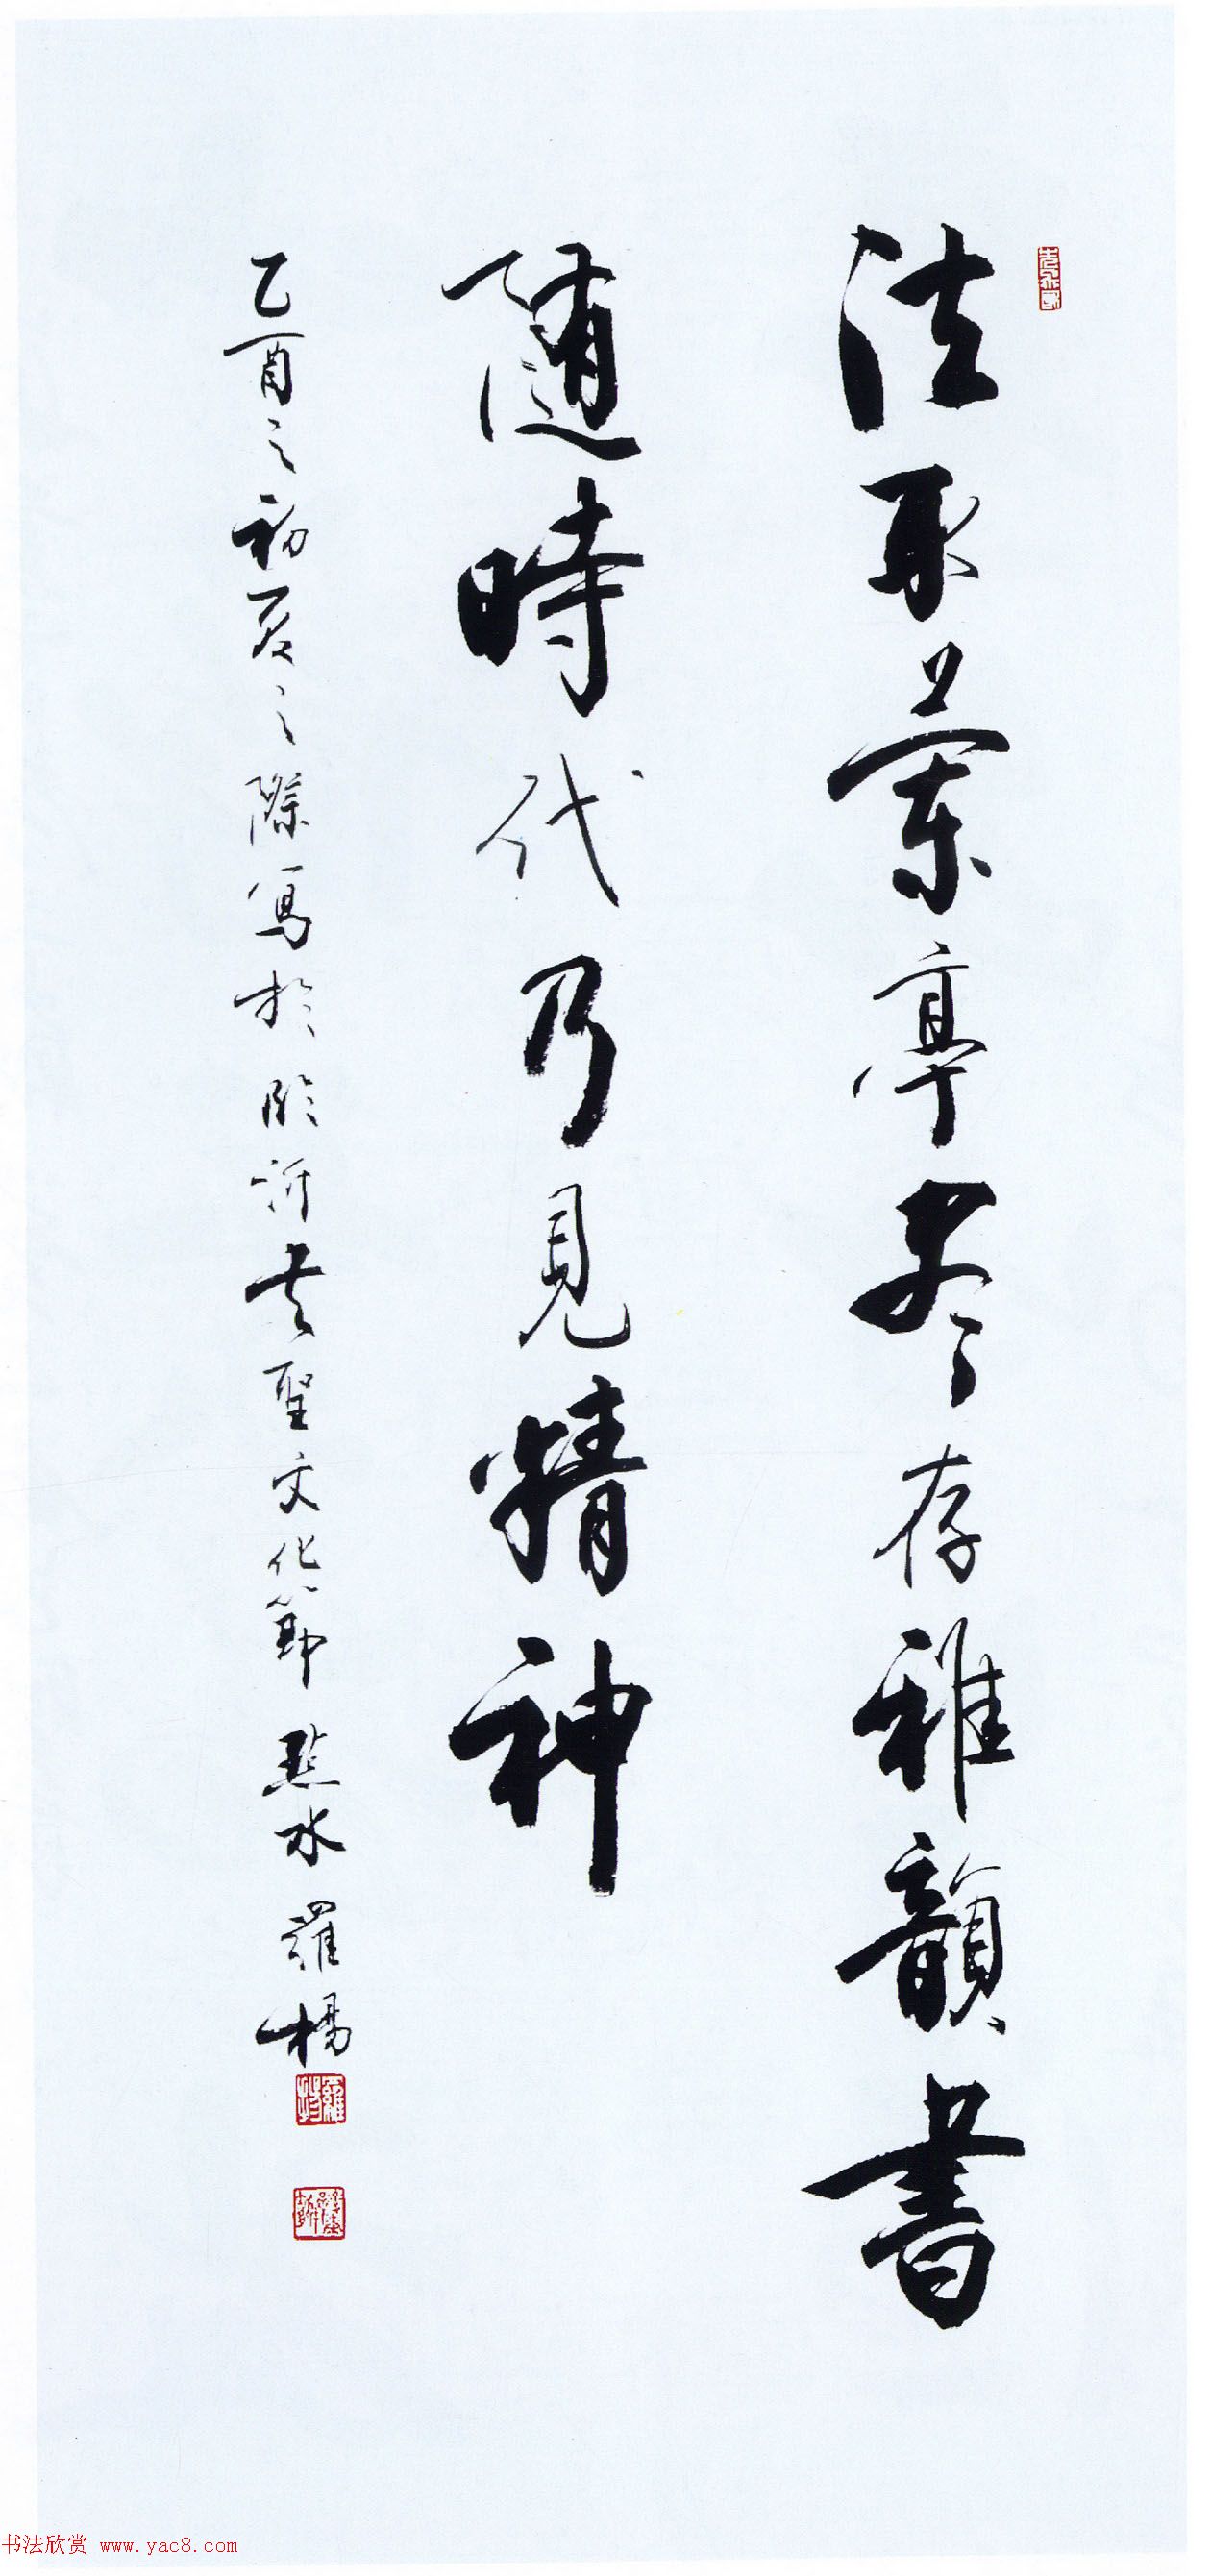 法取蘭亭尽存雅韻書
隨時代乃見精神
乙酉之初夏之際寫於臨沂書聖文化節 點水 羅楊
书法欣赏 www.yac8.com